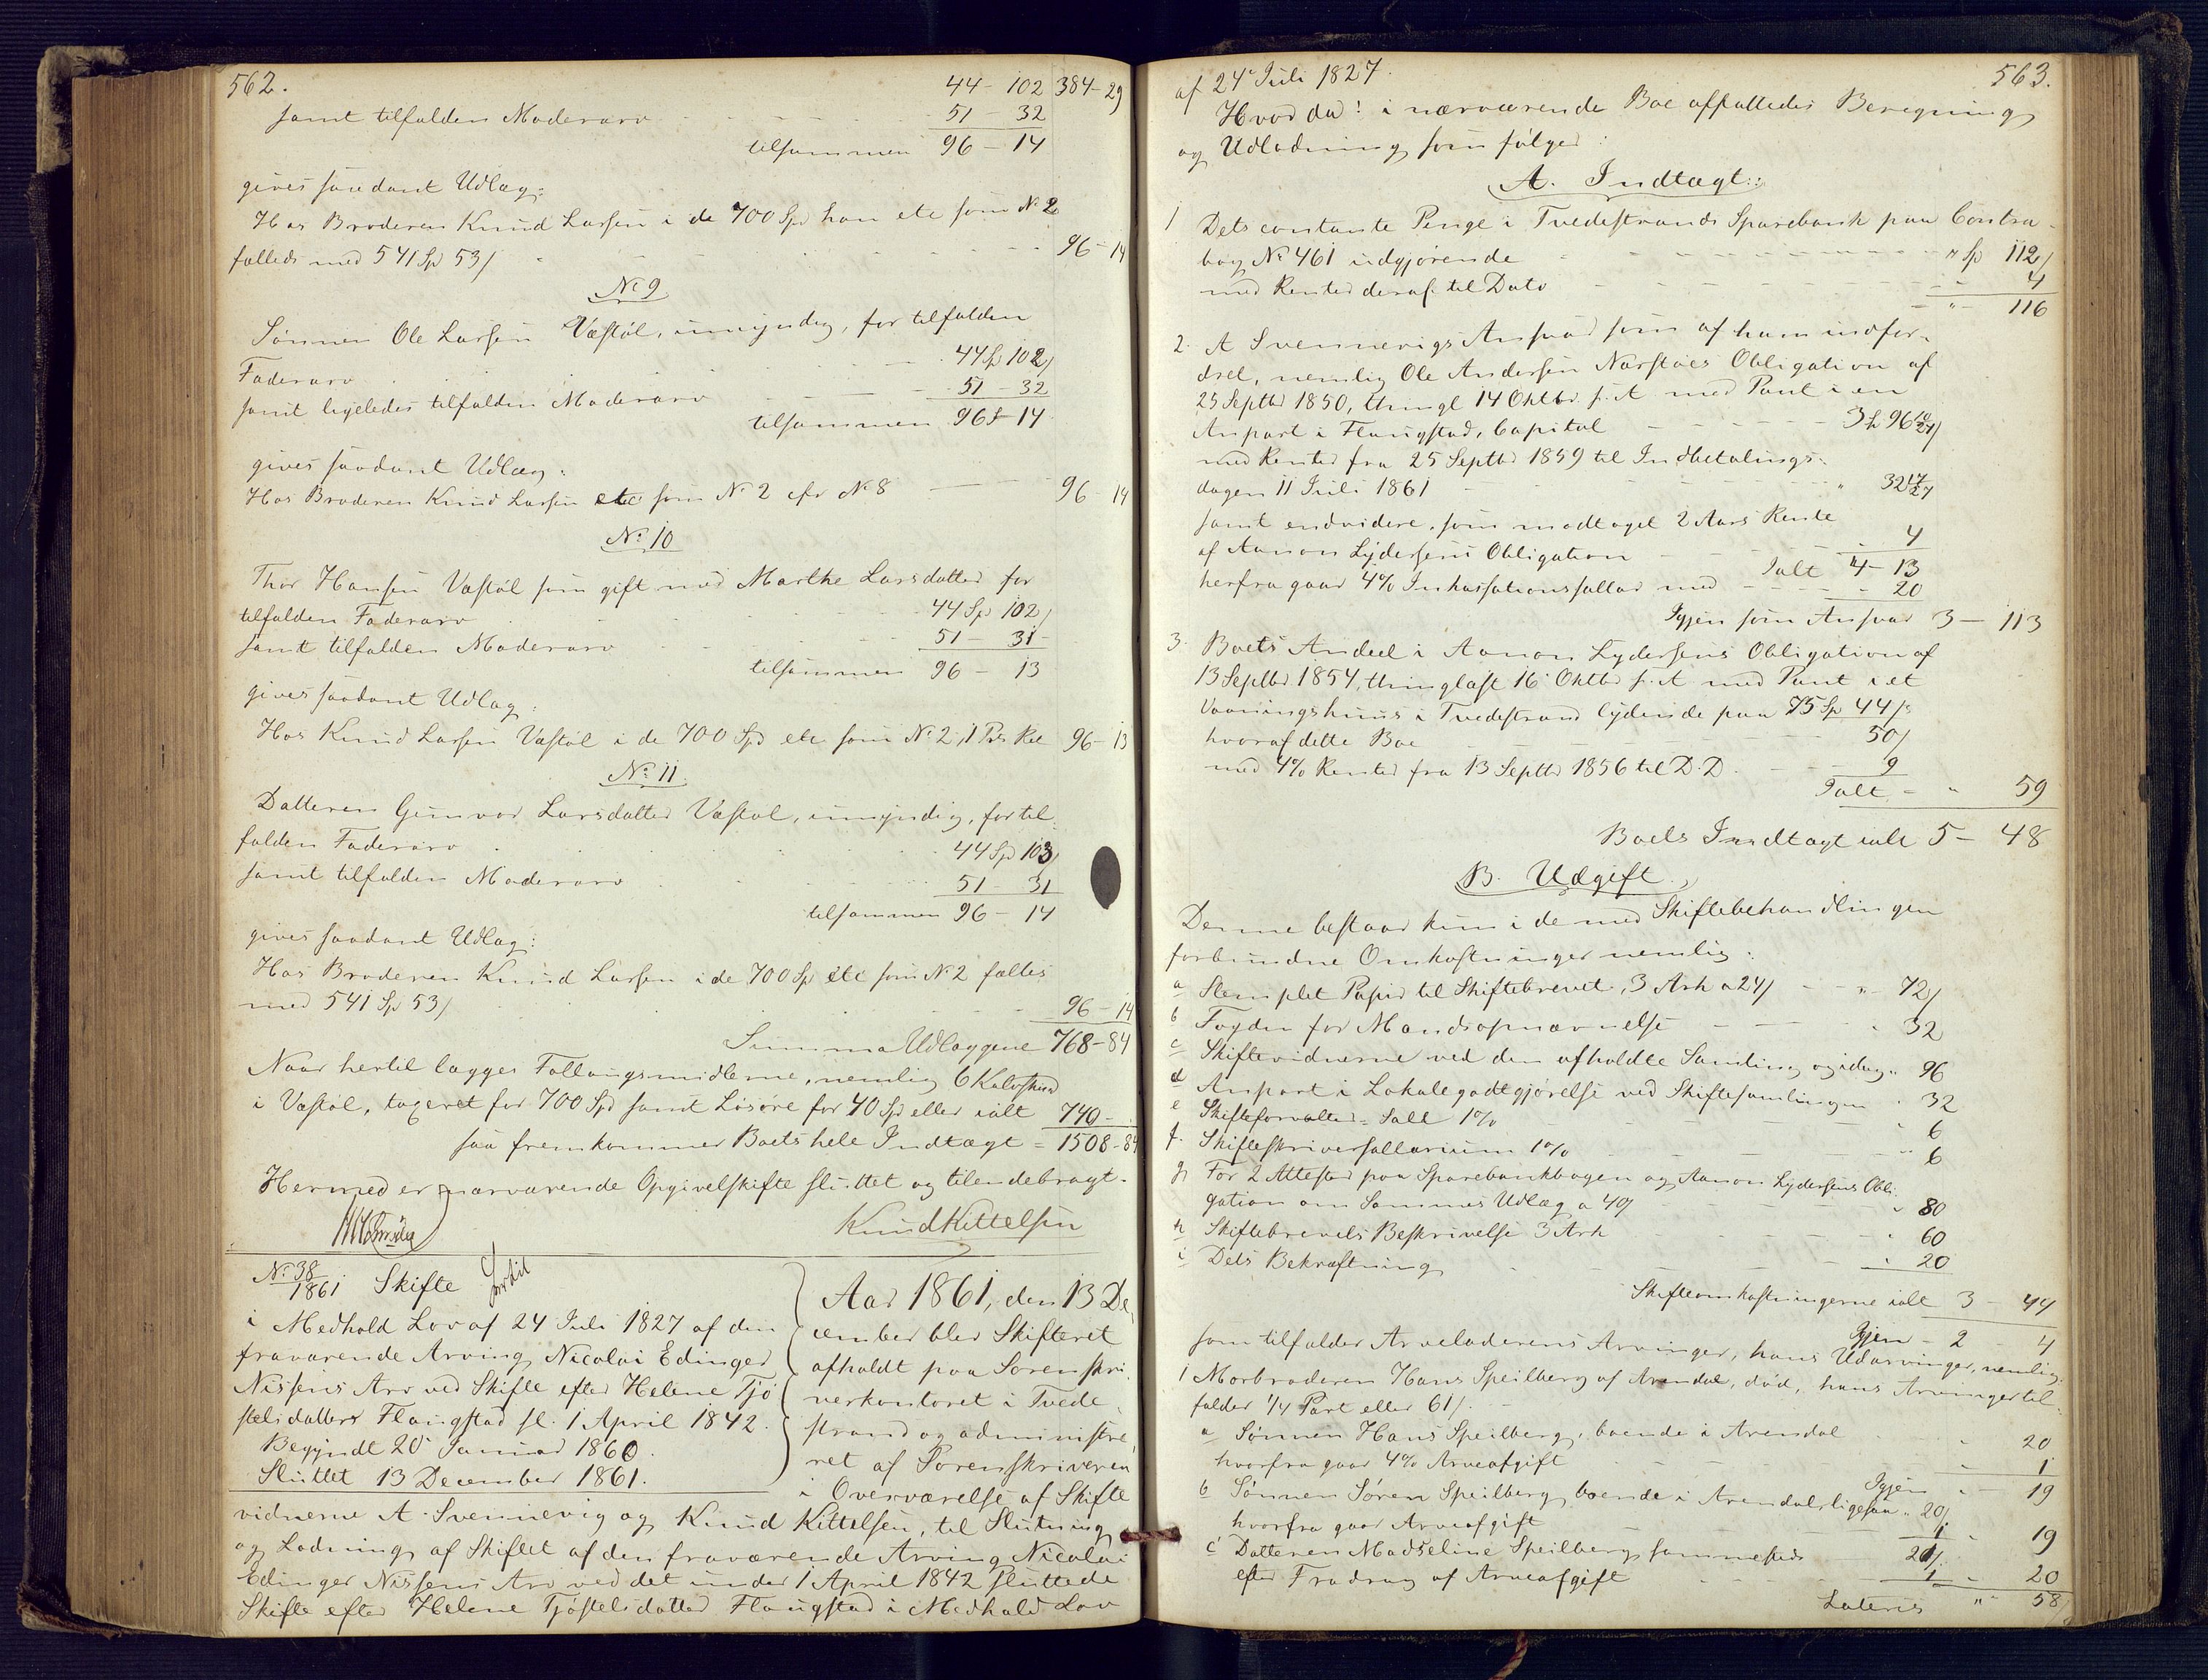 562.
44 - 102 384 - 29
samt tilfalden Moderarv 51 - 32
tilsammen 96 - 14
gives saadant Udlæg:
Hos Broderen Knud Larsen i de 700 Spd han etc som No 2
fælleds med 541 Sp 53/ 96 - 14
No 9
Sønnen Ole Larsen Vastøl, umyndig, for tilfalden
Faderarv 44 Sp 102/
samt ligeledes tilfalden Moderarv 51 - 32
tilsammen 96 - 14
gives saadant Udlæg:
Hos Broderen Knud Larsen etc som No 2 cfr No 8 96 - 14
No 10
Thor Hansen Vastøl som gift med Marthe Larsdatter for
tilfalden Faderarv 44 Sp 102/
samt tilfalden Moderarv 51 - 31
tilsammen 96 - 13
gives saadant Udlæg:
Hos Knud Larsen Vastøl i de 700 Spd etc som No 2, 96 - 13
No 11
Datteren Gunvor Larsdatter Vastøl, umyndig, for til-
falden Faderarv 44 Sp 103/
samt tilfalden Moderarv 51 - 31
tilsammen 96 - 14
gives saadant Udlæg:
Hos Broderen Knud Larsen i de 700 Sp etc som No 2 fælles
med 541 Sp 53/ 96 - 14
Summa Udlæggene 768 - 84
Naar hertil lægges Fallangsmidlerne, nemlig 6 Kalvskind
i Vastøl, taxeret for 700 Spd samt Løsøre for 40 Spd eller ialt 740 -
saa fremkommer Boets hele Indtægt = 1508 - 84
Hermed er nærværende Opgivelskifte sluttet og tilendebragt.
Knud Kittelsen
No 38
1861 Skifte
i Medhold Lov af 24 Juli 1827 af den
fraværende Arving Nicolai Edinger
Nissens Arv ved Skifte efter Helene Tjø-
stelsdatter Flaugstad sl. 1 April 1842.
Begyndt 20 Januar 1860.
Sluttet 13 December 1861.
Aar 1861, den 13 De-
cember blev Skifteret
afholdt paa Sorenskri-
verkontoret i Tvede-
strand og administre-
ret af Sorenskriveren
i Overværelse af Skifte
vidnerne A. Svennevig og Knud Kittelsen, til Slutning
og Lodning af Skiftet af den fraværende Arving Nicolai
Edinger Nissens Arv ved det under 1 April 1842 sluttede
Skifte efter Helene Tjøstelsdatter Flaugstad i Medhold Lov
563.
af 24 Juli 1827.
Hvorda: i nærværende Boe affattedes Beregning
og Udlodning som følger:
A. Indtægt:
1 Dets contante Penge i Tvedestrands Sparebank paa Contra-
bog No 461 udgjørende " Sp 112/
med Renter deraf til Dato 4
" 116
2. A Svennevigs Ansvar som af ham indfor-
dret, nemlig Ole Andersen Narstøes Obligation af
25 Septbr 1850, thingl 14 Oktbr s. A med Pant i en
Anpart i Flaugstad, Capital 3 Sp 96
med Renter fra 25 Septbr 1859 til Indbetalings-
dagen 11 Juli 1861 " 32 17/27
samt endvidere, som modtaget 2 Aars Rente
af Aanon Lydersens Obligation 4
Ialt 4 - 13
herfra gaar 4% Inkassationssallar med 20
Igjen som Ansvar 3 - 113
3. Boets Andeel i Aanon Lydersens Obligation af
13 Septbr 1854, thinglæst 16 Oktbr s. A med Pant i et
Vaaningshuus i Tvedestrand lydende paa 75 Sp 44/
hvoraf dette Boe 50/
med 4% Renter fra 13 Septbr 1856 til D. D. 9
Ialt - " 59
Boets Indtægt ialt 5 - 48
B. Udgift.
Denne bestaar kun i de med Skiftebehandlingen
forbundne Omkostninger nemlig:
a Stemplet Papir til Skiftebrevet, 3 Ark a 24/ " 72/
b Fogden for Mandsopnævnelse " 32
c Skiftevidnerne ved den afholdte Samling og idag " 96
d Anpart i Lokalegodtgjørelse ved Skiftesamlingen " 32
e Skifteforvalter-Sall 1% " 6
f. Skifteskriversallarium 1% " 6
g For 2 Attester paa Sparebankbogen og Aanon Lydersens Obli-
gation om Sammes Udlæg a 40/ " 80
h Skiftebrevets Beskrivelse 3 Ark " 60
i Dets Bekræftning " 20
Skifteomkostningerne ialt 3 - 44
Igjen - 2 4
som tilfalder Arveladerens Arvinger, hans Udarvinger, nemlig:
1 Morbroderen Hans Speilberg af Arendal, død, hans Arvinger til-
falder 1/4 Part eller 61/.
a Sønnen Hans Speilberg, boende i Arendal " 20
hvorfra gaar 4% Arveafgift " 1
Igjen " 19
b Sønnen Søren Speilberg boende i Arendal, ligesaa " 20/
hvorfra gaar Arveafgift 1 " 19
c Datteren Madseline Speilberg sammesteds 21/.
efter Fradrag af Arveafgift 1 " 20
Lateris " 58/